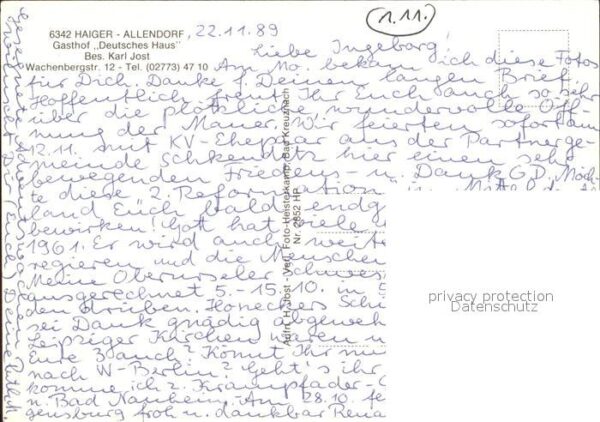 6342 HAIGER - ALLENDORF, 22.11.89
Gasthof „Deutsches Haus"
Bes. Karl Jost
Wachenbergstr. 12 - Tel. (02773) 47 10
(1.11.)
Liebe Ingeborg!
Am Mo. bekam ich diese Fotos
für Dich. Danke f. Deinen langen Brief.
Hoffentlich freut Ihr Euch auch so sehr
über die plötzliche wundervolle Öff-
nung der Mauer. Wir feierten sofort am
12.11. mit KV-Ehepaar aus der Partnerge-
meinde Schkeuditz hier einen sehr
bewegenden Friedens- u. Dank GD. „Möch-
te diese „2. Reformation
land Euch bald endg
bewirken! Gott hat viele
1961. Er wird auch weite
regieren und die Menschen
Meine Oberurseler Schwes
ausgerechnet 5.-15.10. in
den drüben. Honeckers Schi
sei Dank gnädig abgeweh
Leipziger Kirchen waren
Eure 3 auch? Könnt Ihr nu
nach W-Berlin? Geht's ihr
komme ich z. Krampfader-
u. Bad Nauheim. Am 28.10. fe
gensburg froh u. dankbar Rena
Aufn. H. Jost - Verl. Foto-Heisterkamp, Bad Kreuznach
Nr. 2652 HR
privacy protection
Datenschutz